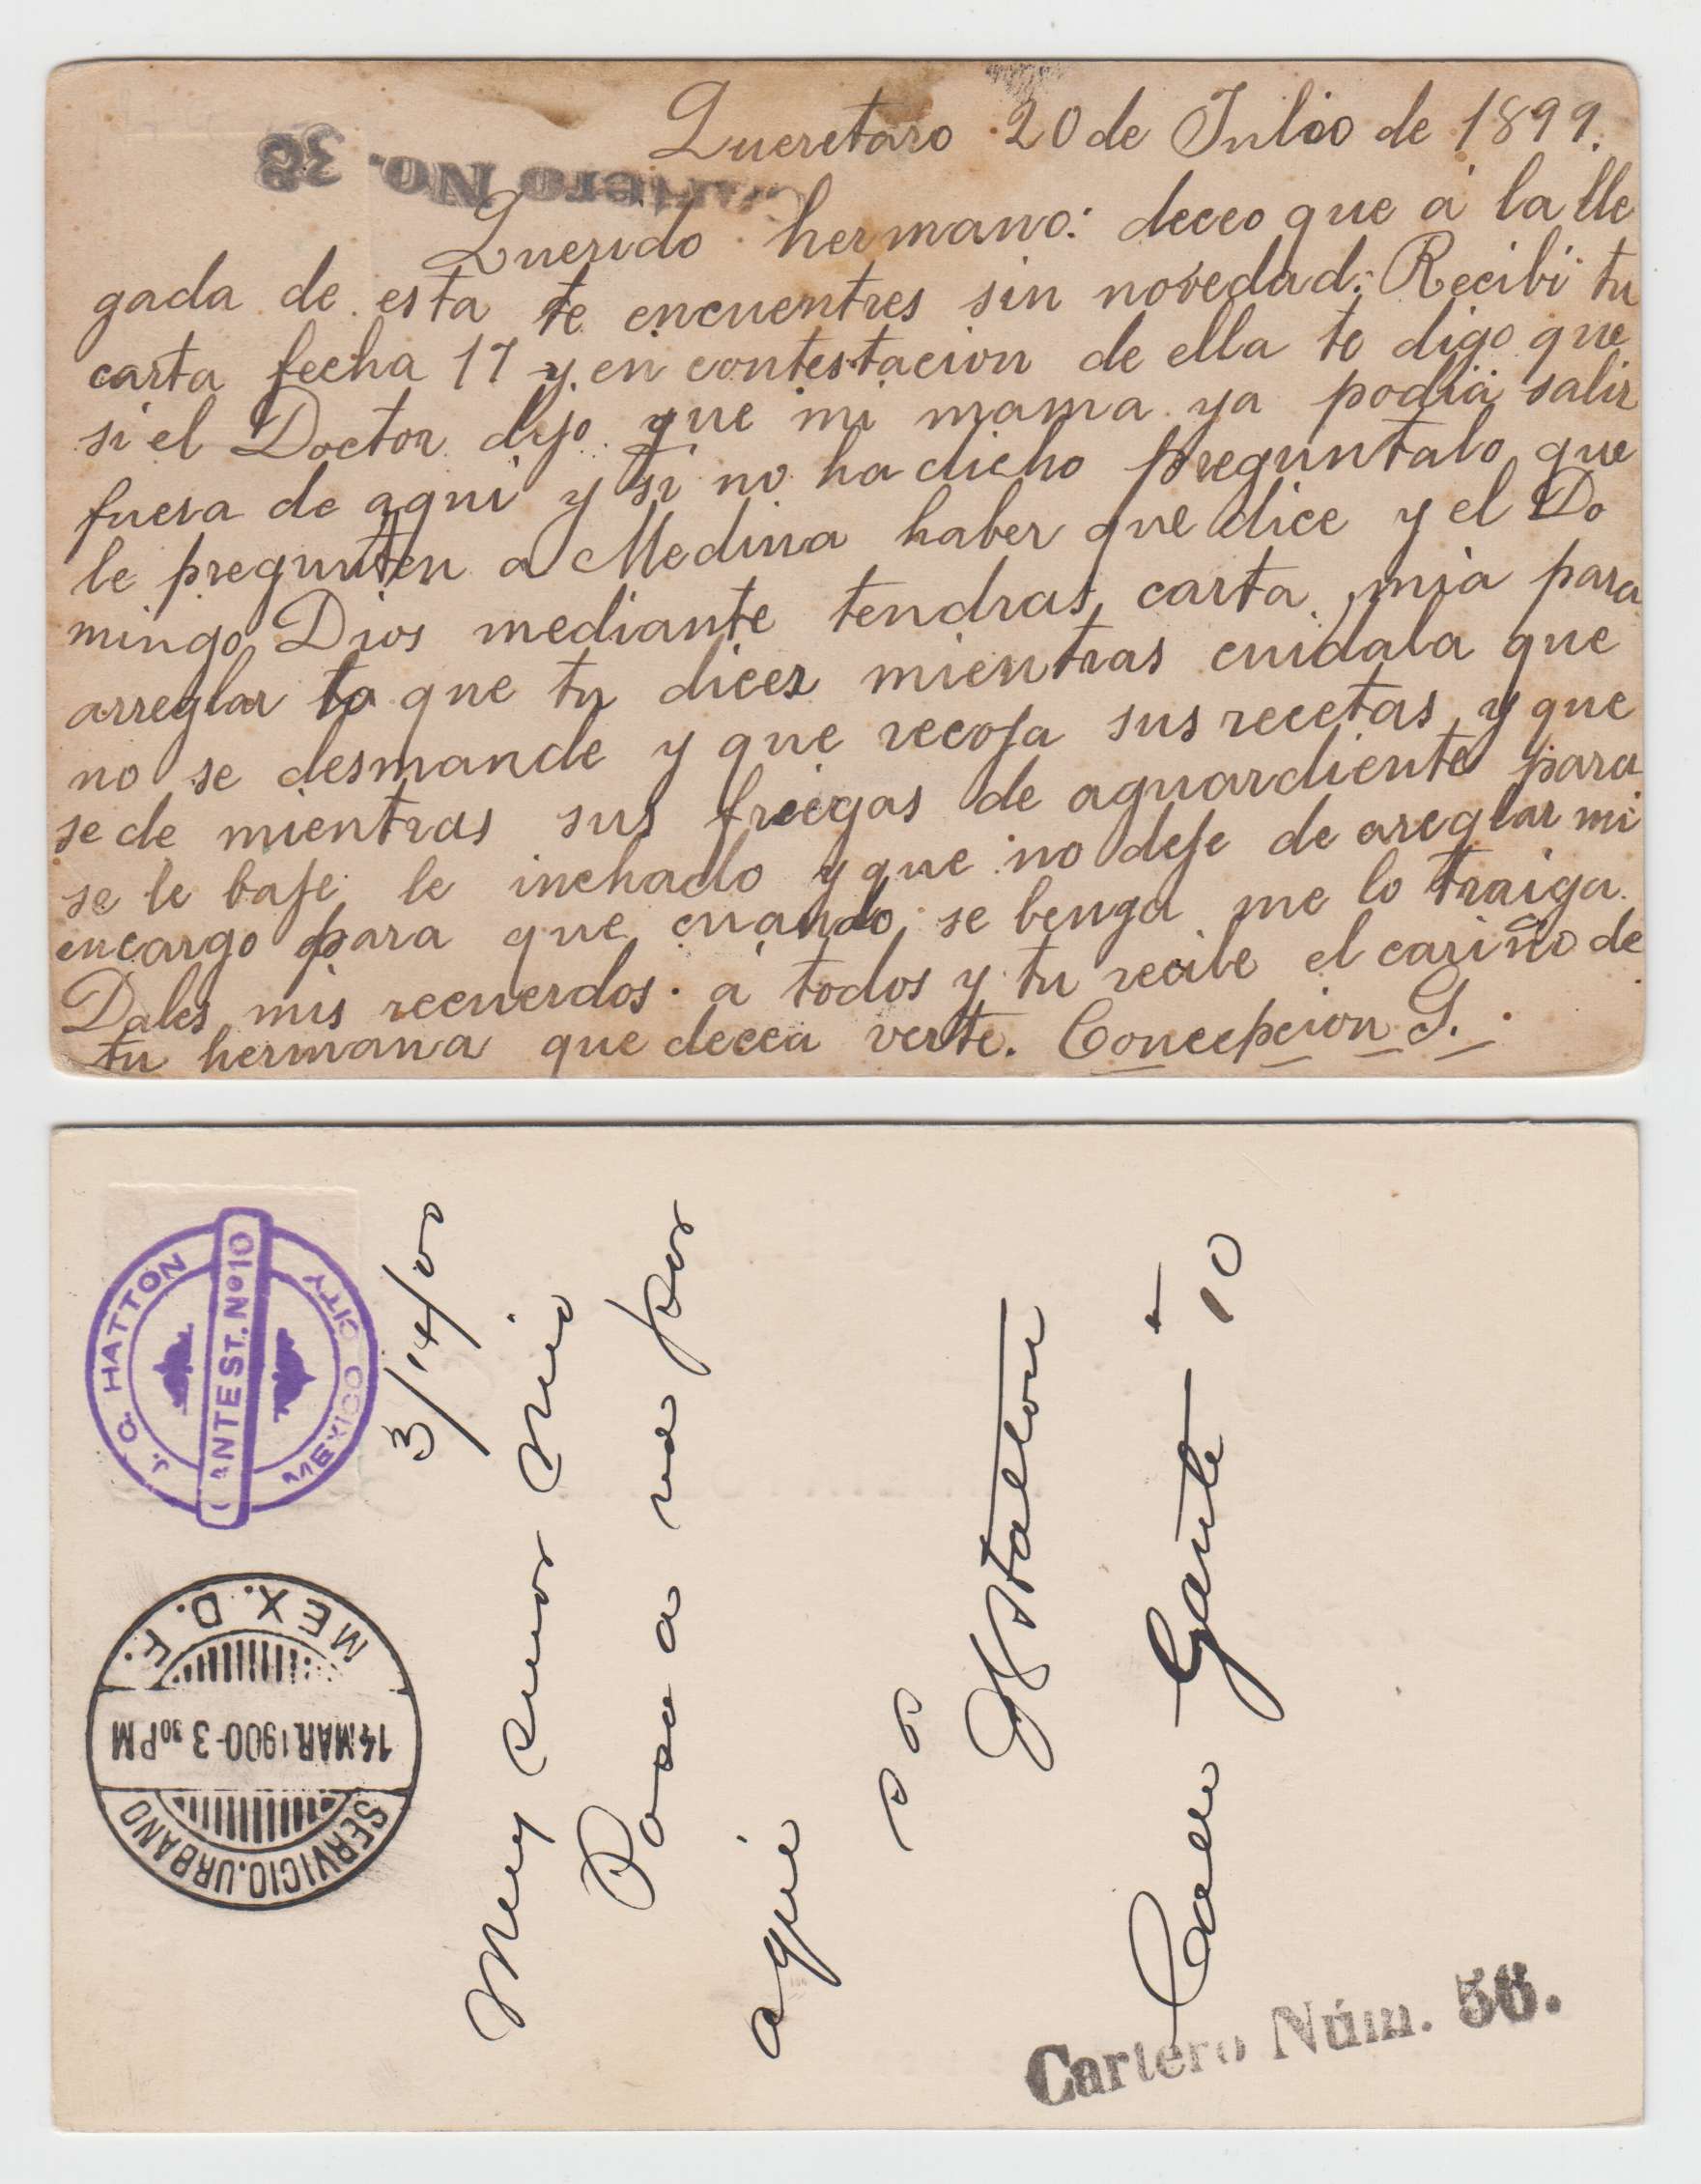 Queretaro 20 de Julio de 1899.
Cartero No. 38
Querido hermano: deceo que á la lle
gada de esta te encuentres sin novedad: Recibi tu
carta fecha 17 y en contestacion de ella te digo que
si el Doctor dijo que mi mama ya podia salir
fuera de aqui y si no ha dicho preguntalo que
le pregunten a Medina haber que dice y el Do
mingo Dios mediante tendras carta mia para
arreglar lo que tu dices mientras cuidala que
no se desmande y que recoja sus recetas y que
se de mientras sus friegas de aguardiente para
se le baje le inchado y que no deje de areglar mi
encargo para que cuando se benga me lo traiga.
Dales mis recuerdos á todos y tu recibe el cariño de
tu hermana que decea verte. Concepcion G.
J. C. HATTON
CANTEST. Nº 10
MEXICO CITY
SERVICIO URBANO
14 MAR 1900-3 30 PM
MEX. D. F.
3/14/00
Muy Senor Mio
Pasa a me por
aqui
S S
Hatton
Calle Gante 10
Cartero Núm. 56.